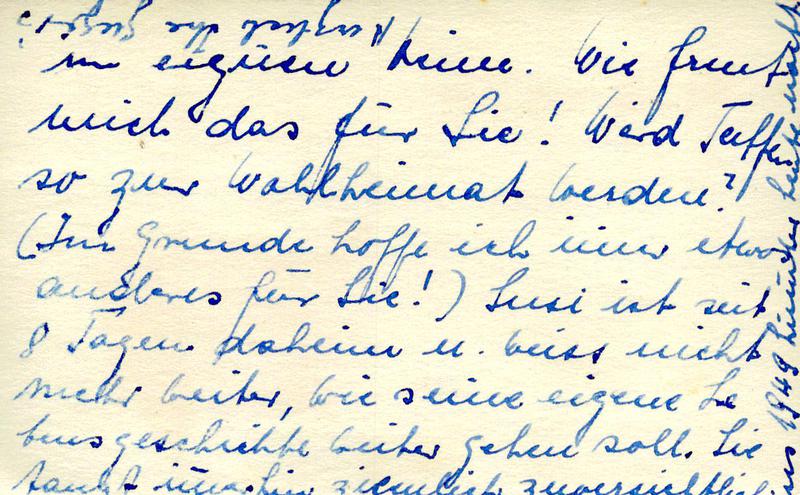 im eigenen Heim. Wie freut
mich das für Sie! Wird Tuffen
so zur Wahlheimat werden?
(Im Grunde hoffe ich immer etwas
anderes für Sie!) Susi ist seit
8 Tagen daheim u. weiss nicht
mehr weiter, wie seine eigene Le
bensgeschichte weiter gehen soll. Sie
immerhin ziemlich zuversichtlich
1949